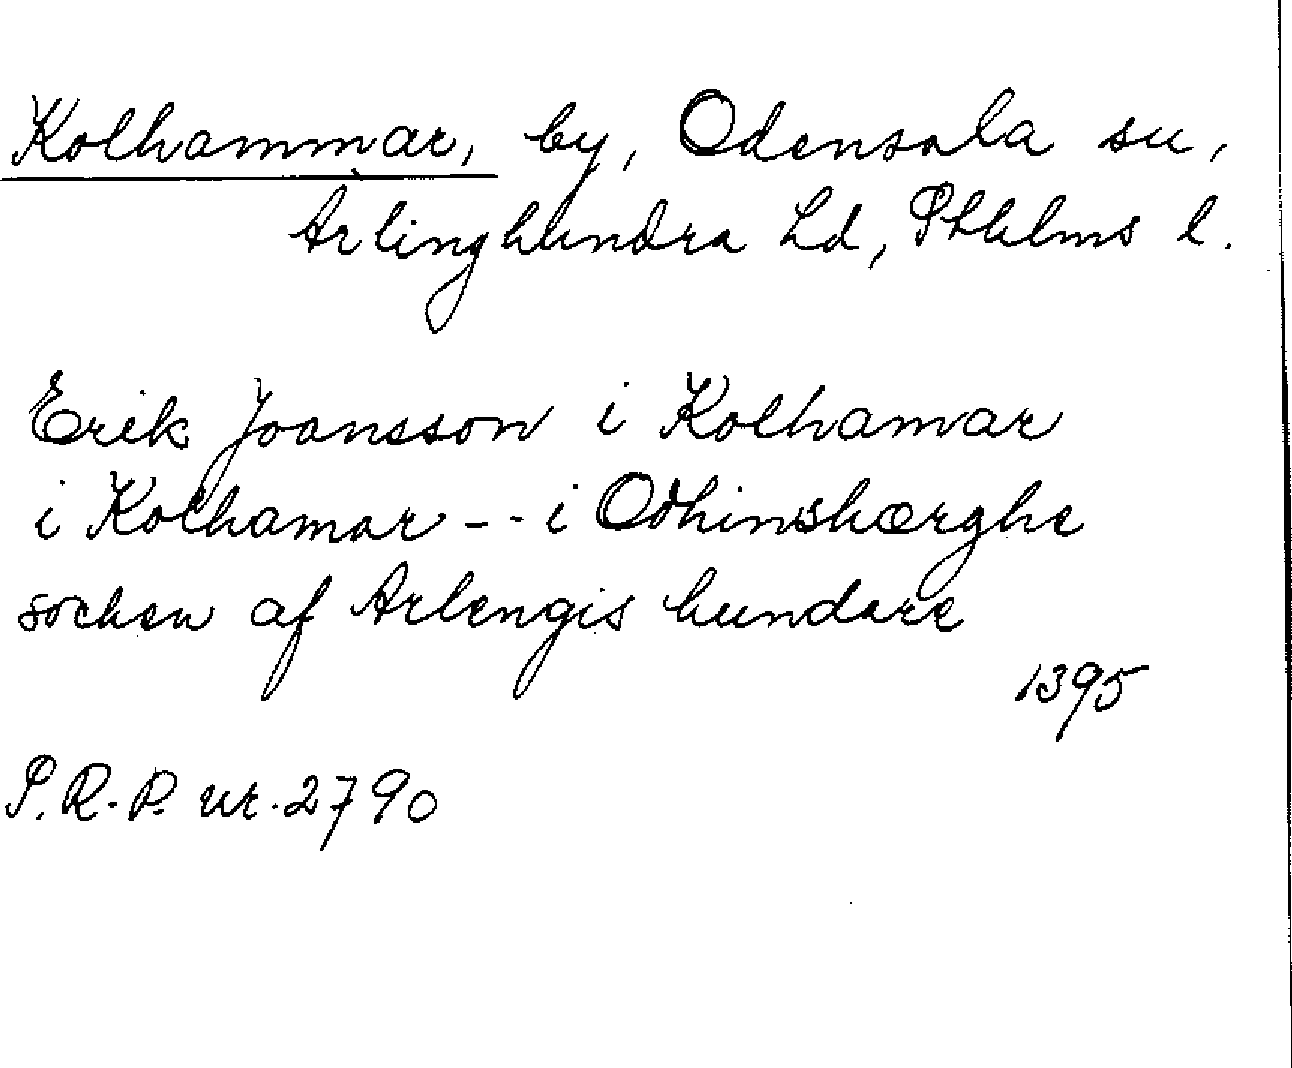 Kolhammar, by, Odensala sn,
Ärlinghundra hd, Sthlms l.
Erik Joansson i Kolhamar
i Kolhamar -- i Odhinshærghe
sochen af Ärlengis hundare
1395
S.R.P. nr. 2790